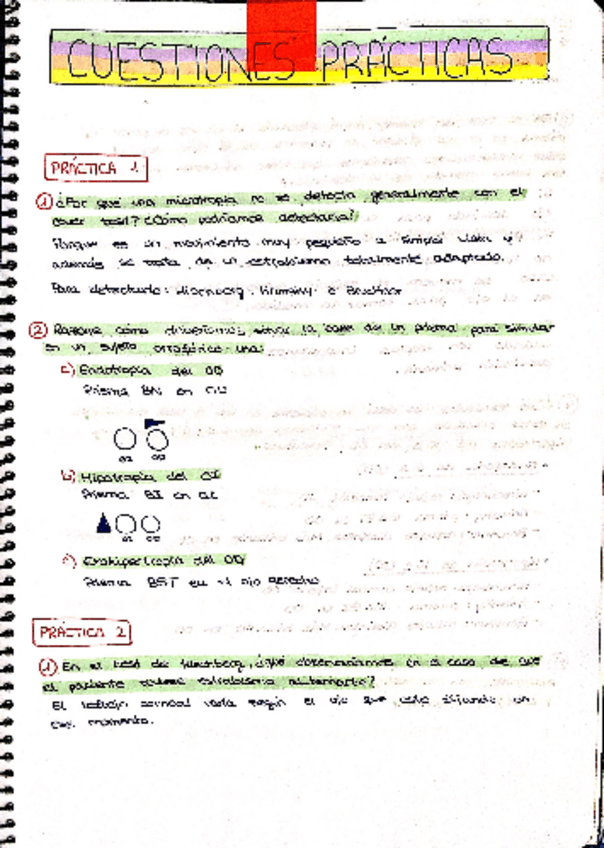 CUESTIONES PRÁCTICAS
PRÁCTICA 1
1) ¿Por qué una microtropia no se detecta generalmente con el
cover test? ¿Cómo podríamos detectarla?
Porque es un movimiento muy pequeño a simple vista y
además se trata de un estrabismo totalmente adaptado.
Para detectarlo: Hirschberg, Krimsky o Brückner
2) Razone cómo deberíamos situar la base de un prisma para simular
en un sujeto ortofórico una:
a) Endotropia del OD
Prisma BN en OD
b) Hipotropia del OI
Prisma en
c) Exohipertropia del OD
Prisma BST en el ojo derecho
PRÁCTICA 2
1) En el test de Hirschberg, ¿qué observaríamos en el caso de que
el paciente tuviese estrabismo alternante?
El reflejo corneal varía según el ojo que esté fijando en
ese momento.